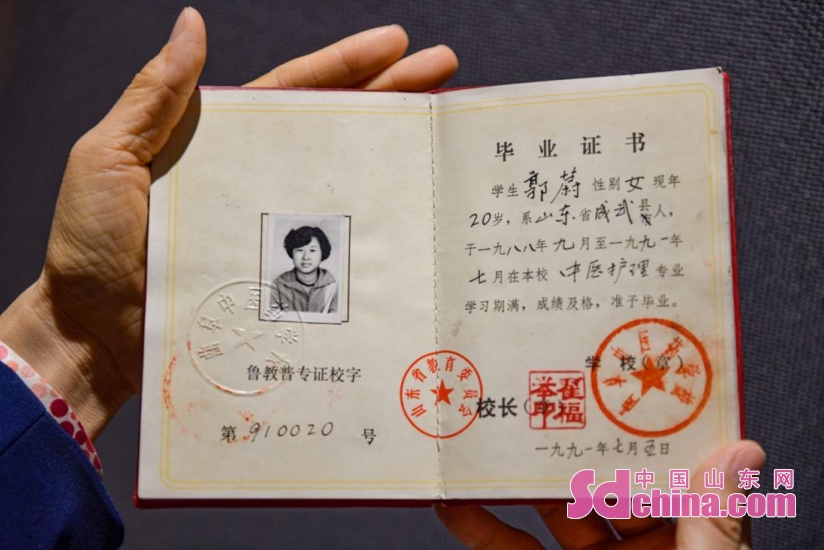 鲁教普专证校字
第 910020 号
山东省教育委员会
毕业证书
学生 郭蔚 性别 女 现年
20岁，系山东省成武县人，
于一九八八年九月至一九九一年
七月在本校 中医护理 专业
学习期满，成绩及格，准予毕业。
学 校（章）
校长
翟福举印
一九九一年七月五日
中国山东网
Sdchina.com